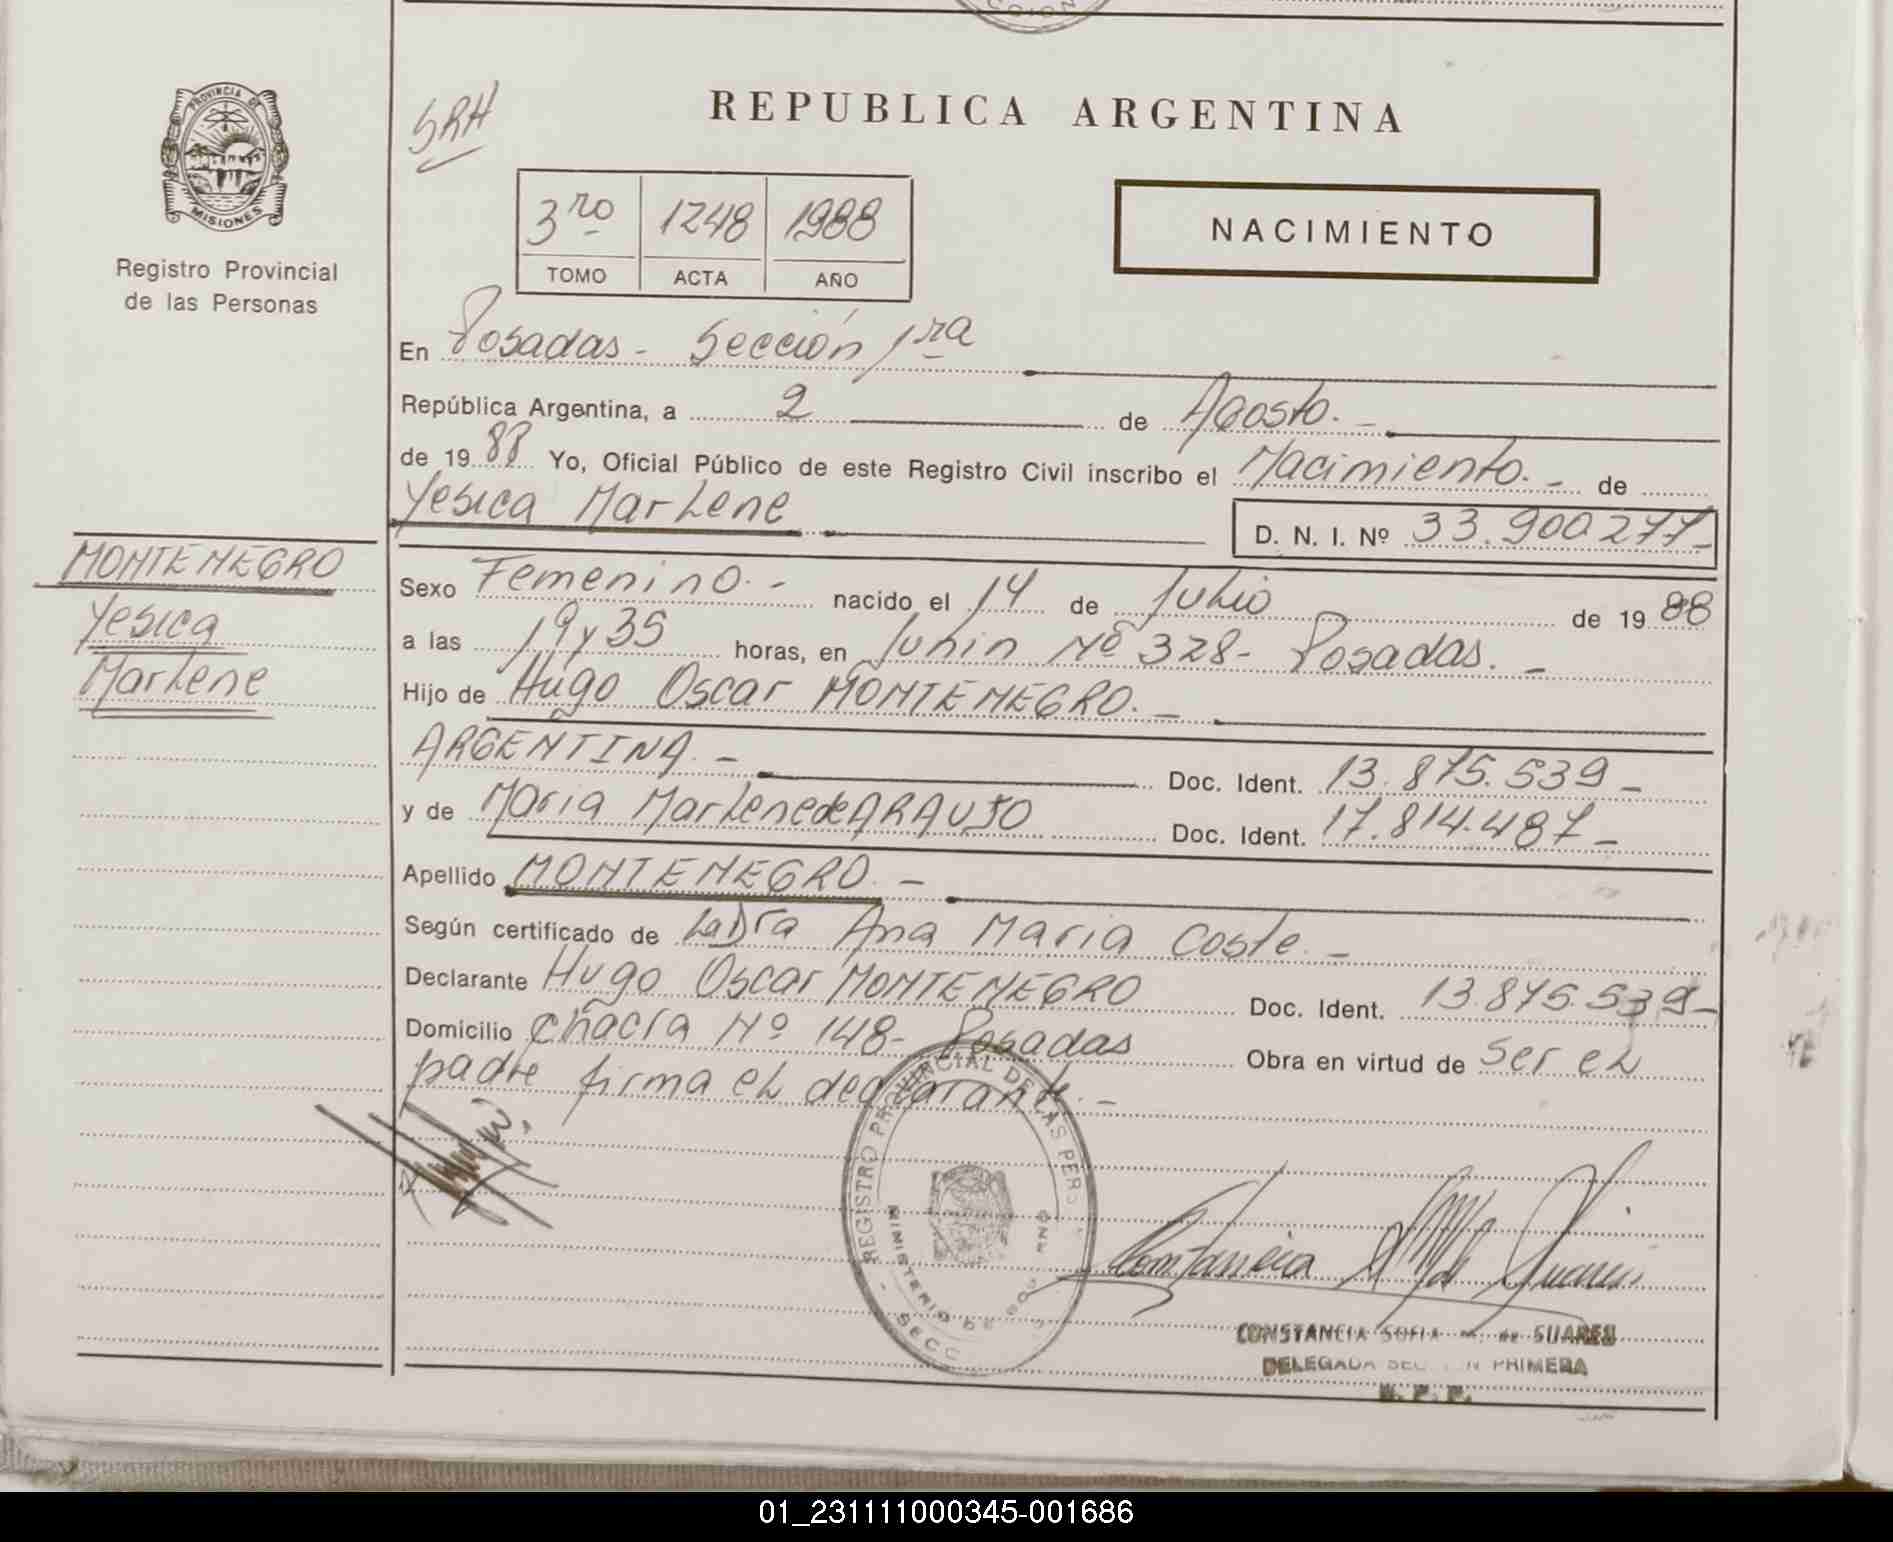 CCION
PROVINCIA DE
MISIONES
Registro Provincial
de las Personas
SRH
REPUBLICA ARGENTINA
3ro 1248 1988
TOMO ACTA AÑO
NACIMIENTO
En Posadas - Sección 1ra
República Argentina, a 2 de Agosto. -
de 1988 Yo, Oficial Público de este Registro Civil inscribo el Nacimiento. - de
Yesica Marlene
D. N. I. Nº 33.900277-
MONTENEGRO
Yesica
Marlene
Sexo Femenino. - nacido el 14 de Julio de 1988
a las 19 y 35 horas, en Junin Nº 328- Posadas. -
Hijo de Hugo Oscar MONTENEGRO. -
ARGENTINA. - Doc. Ident. 13.875.539 -
y de Maria Marlene de ARAUJO Doc. Ident. 17.814.487 -
Apellido MONTENEGRO. -
Según certificado de La Dra Ana Maria Coste. -
Declarante Hugo Oscar MONTENEGRO Doc. Ident. 13.875.539-
Domicilio chacra Nº 148- Posadas Obra en virtud de ser el
padre firma el declarante. -
REGISTRO PROVINCIAL DE LAS PERS
MINISTERIO DE GOB
SECC
CONSTANCIA SOFIA de SUARES
DELEGADA PRIMERA
R. P. P.
01_231111000345-001686